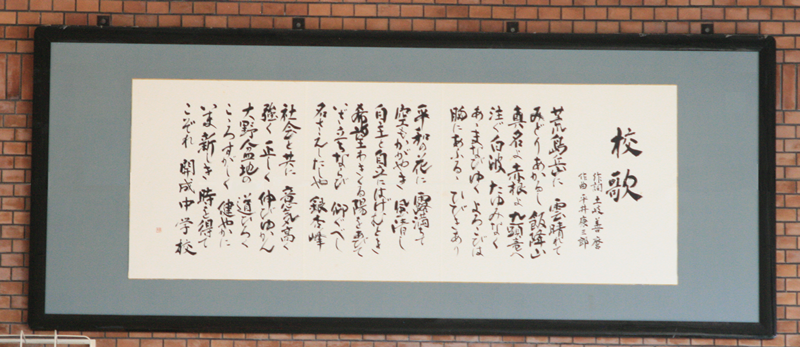 校歌
作詞 土岐善麿
作曲 平井康三郎
荒島岳に 雲晴れて
みどりあかるし 飯降山
真名よ赤根よ 九頭竜へ
注ぐ白波 たゆみなく
あゝまなびゆく よろこびは
胸にあふるゝ あり
平和の花に 露満ちて
空もかがやき 風清し
自主と自立にはげむとき
希望わきくる陽をあびて
いざ立ちならび 仰ぐべし
名さえしたしや 銀杏峰
社会と共に 意気高く
強く正しく 伸びゆかん
大野盆地の 道ひろく
こころすがしく 健やかに
いま新しき 時を得て
こぞれ 開成中学校